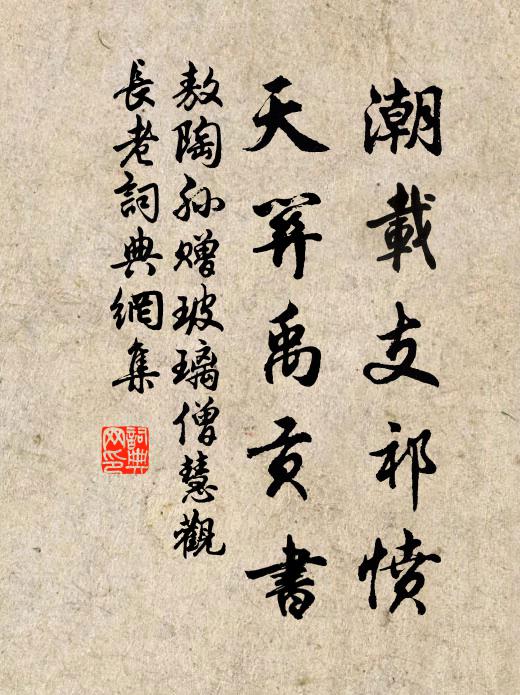 潮載支祁憤
天羿禹貢書
敖陶孙赠玻璃僧慧觀
長老詞典網集
詞典网印